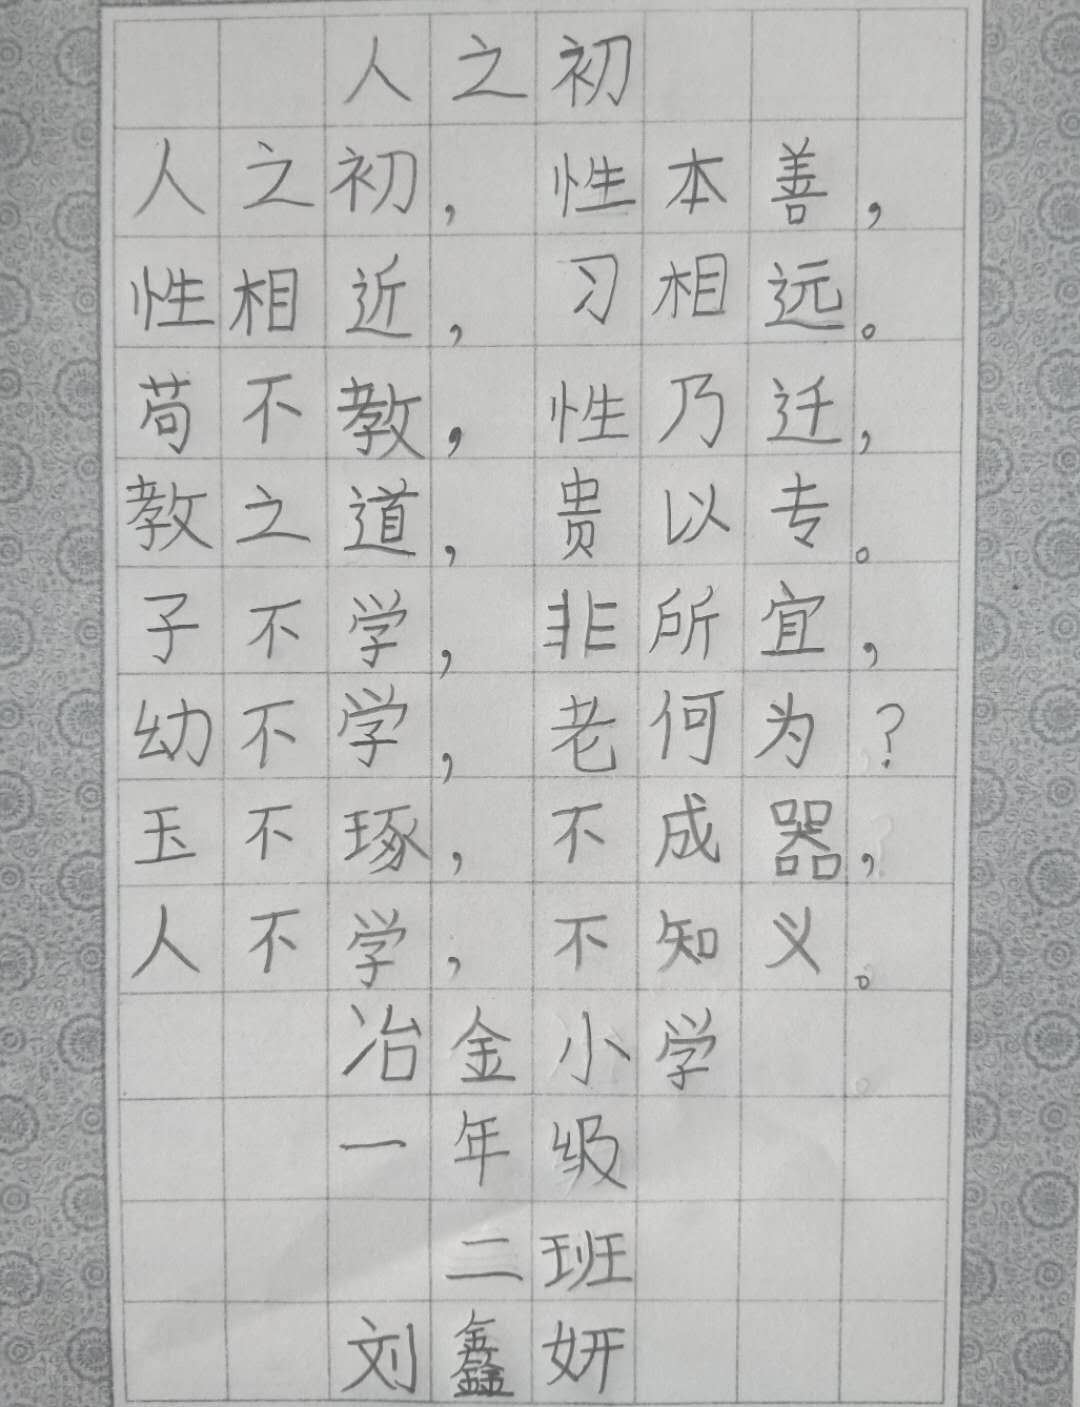 人之初
人之初，性本善，
性相近，习相远。
苟不教，性乃迁，
教之道，贵以专。
子不学，非所宜，
幼不学，老何为？
玉不琢，不成器，
人不学，不知义。
冶金小学
一年级
二班
刘鑫妍